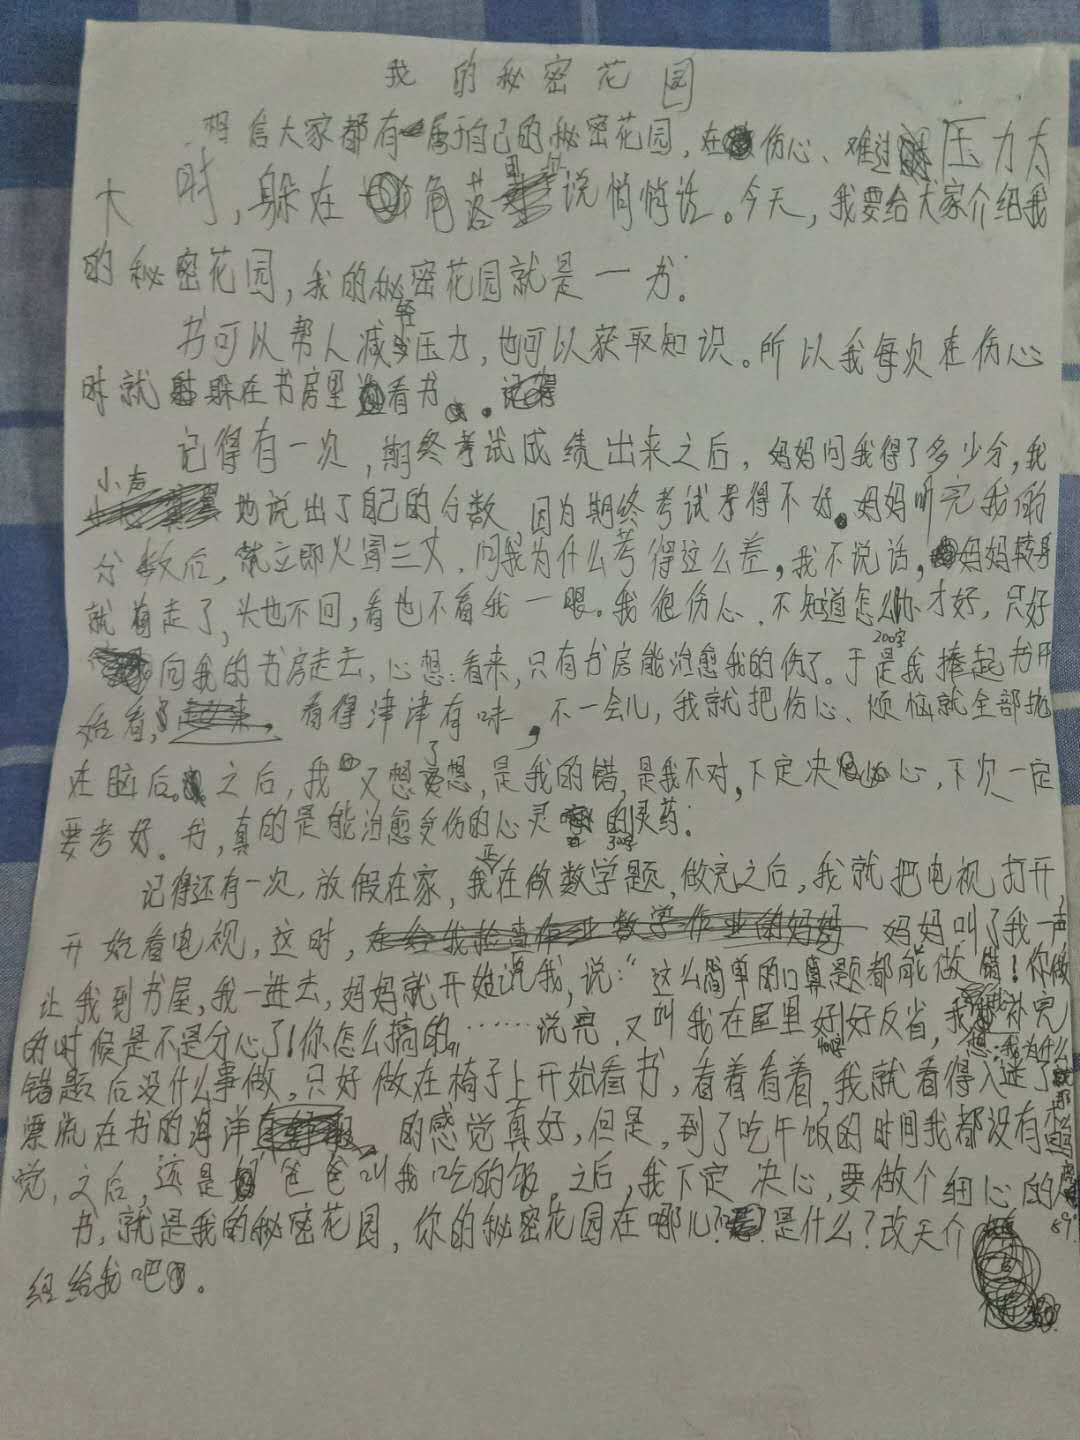 我的秘密花园
相信大家都有属于自己的秘密花园，在伤心、难过、压力太
大时，躲在角落里说悄悄话。今天，我要给大家介绍我
的秘密花园，我的秘密花园就是一书。
书可以帮人减轻压力，也可以获取知识。所以我每次在伤心
时就躲在书房里看书。
记得有一次，期终考试成绩出来之后，妈妈问我得了多少分，我
小声地说出了自己的分数，因为期终考试考得不好。妈妈听完我的
分数后，就立即火冒三丈，问我为什么考得这么差，我不说话，妈妈转身
就走了，头也不回，看也不看我一眼。我很伤心、不知道怎么办才好，只好
向我的书房走去，心想：看来，只有书房能治愈我的伤了。于是我捧起书开
200字
始看，看得津津有味，不一会儿，我就把伤心、烦恼就全部抛
在脑后。之后，我又想了想，是我的错，是我不对，下定决心，下次一定
要考好。书，真的是能治愈受伤的心灵的灵药。
300字
记得还有一次，放假在家，我正在做数学题，做完之后，我就把电视打开，
开始看电视，这时，妈妈叫了我一声
让我到书屋，我一进去，妈妈就开始说我，说："这么简单的口算题都能做错！你做
的时候是不是分心了！你怎么搞的……"说完，又叫我在屋里好好反省，我补完
400字
想：我为什么
错题后没什么事做，只好做在椅子上开始看书，看着看着，我就看得入迷了
票流在书的海洋的感觉真好，但是，到了吃午饭的时间我都没有
觉，之后，还是爸爸叫我吃的饭，之后，我下定决心，要做个细心的
书，就是我的秘密花园，你的秘密花园在哪儿？是什么？改天介
绍给我吧。